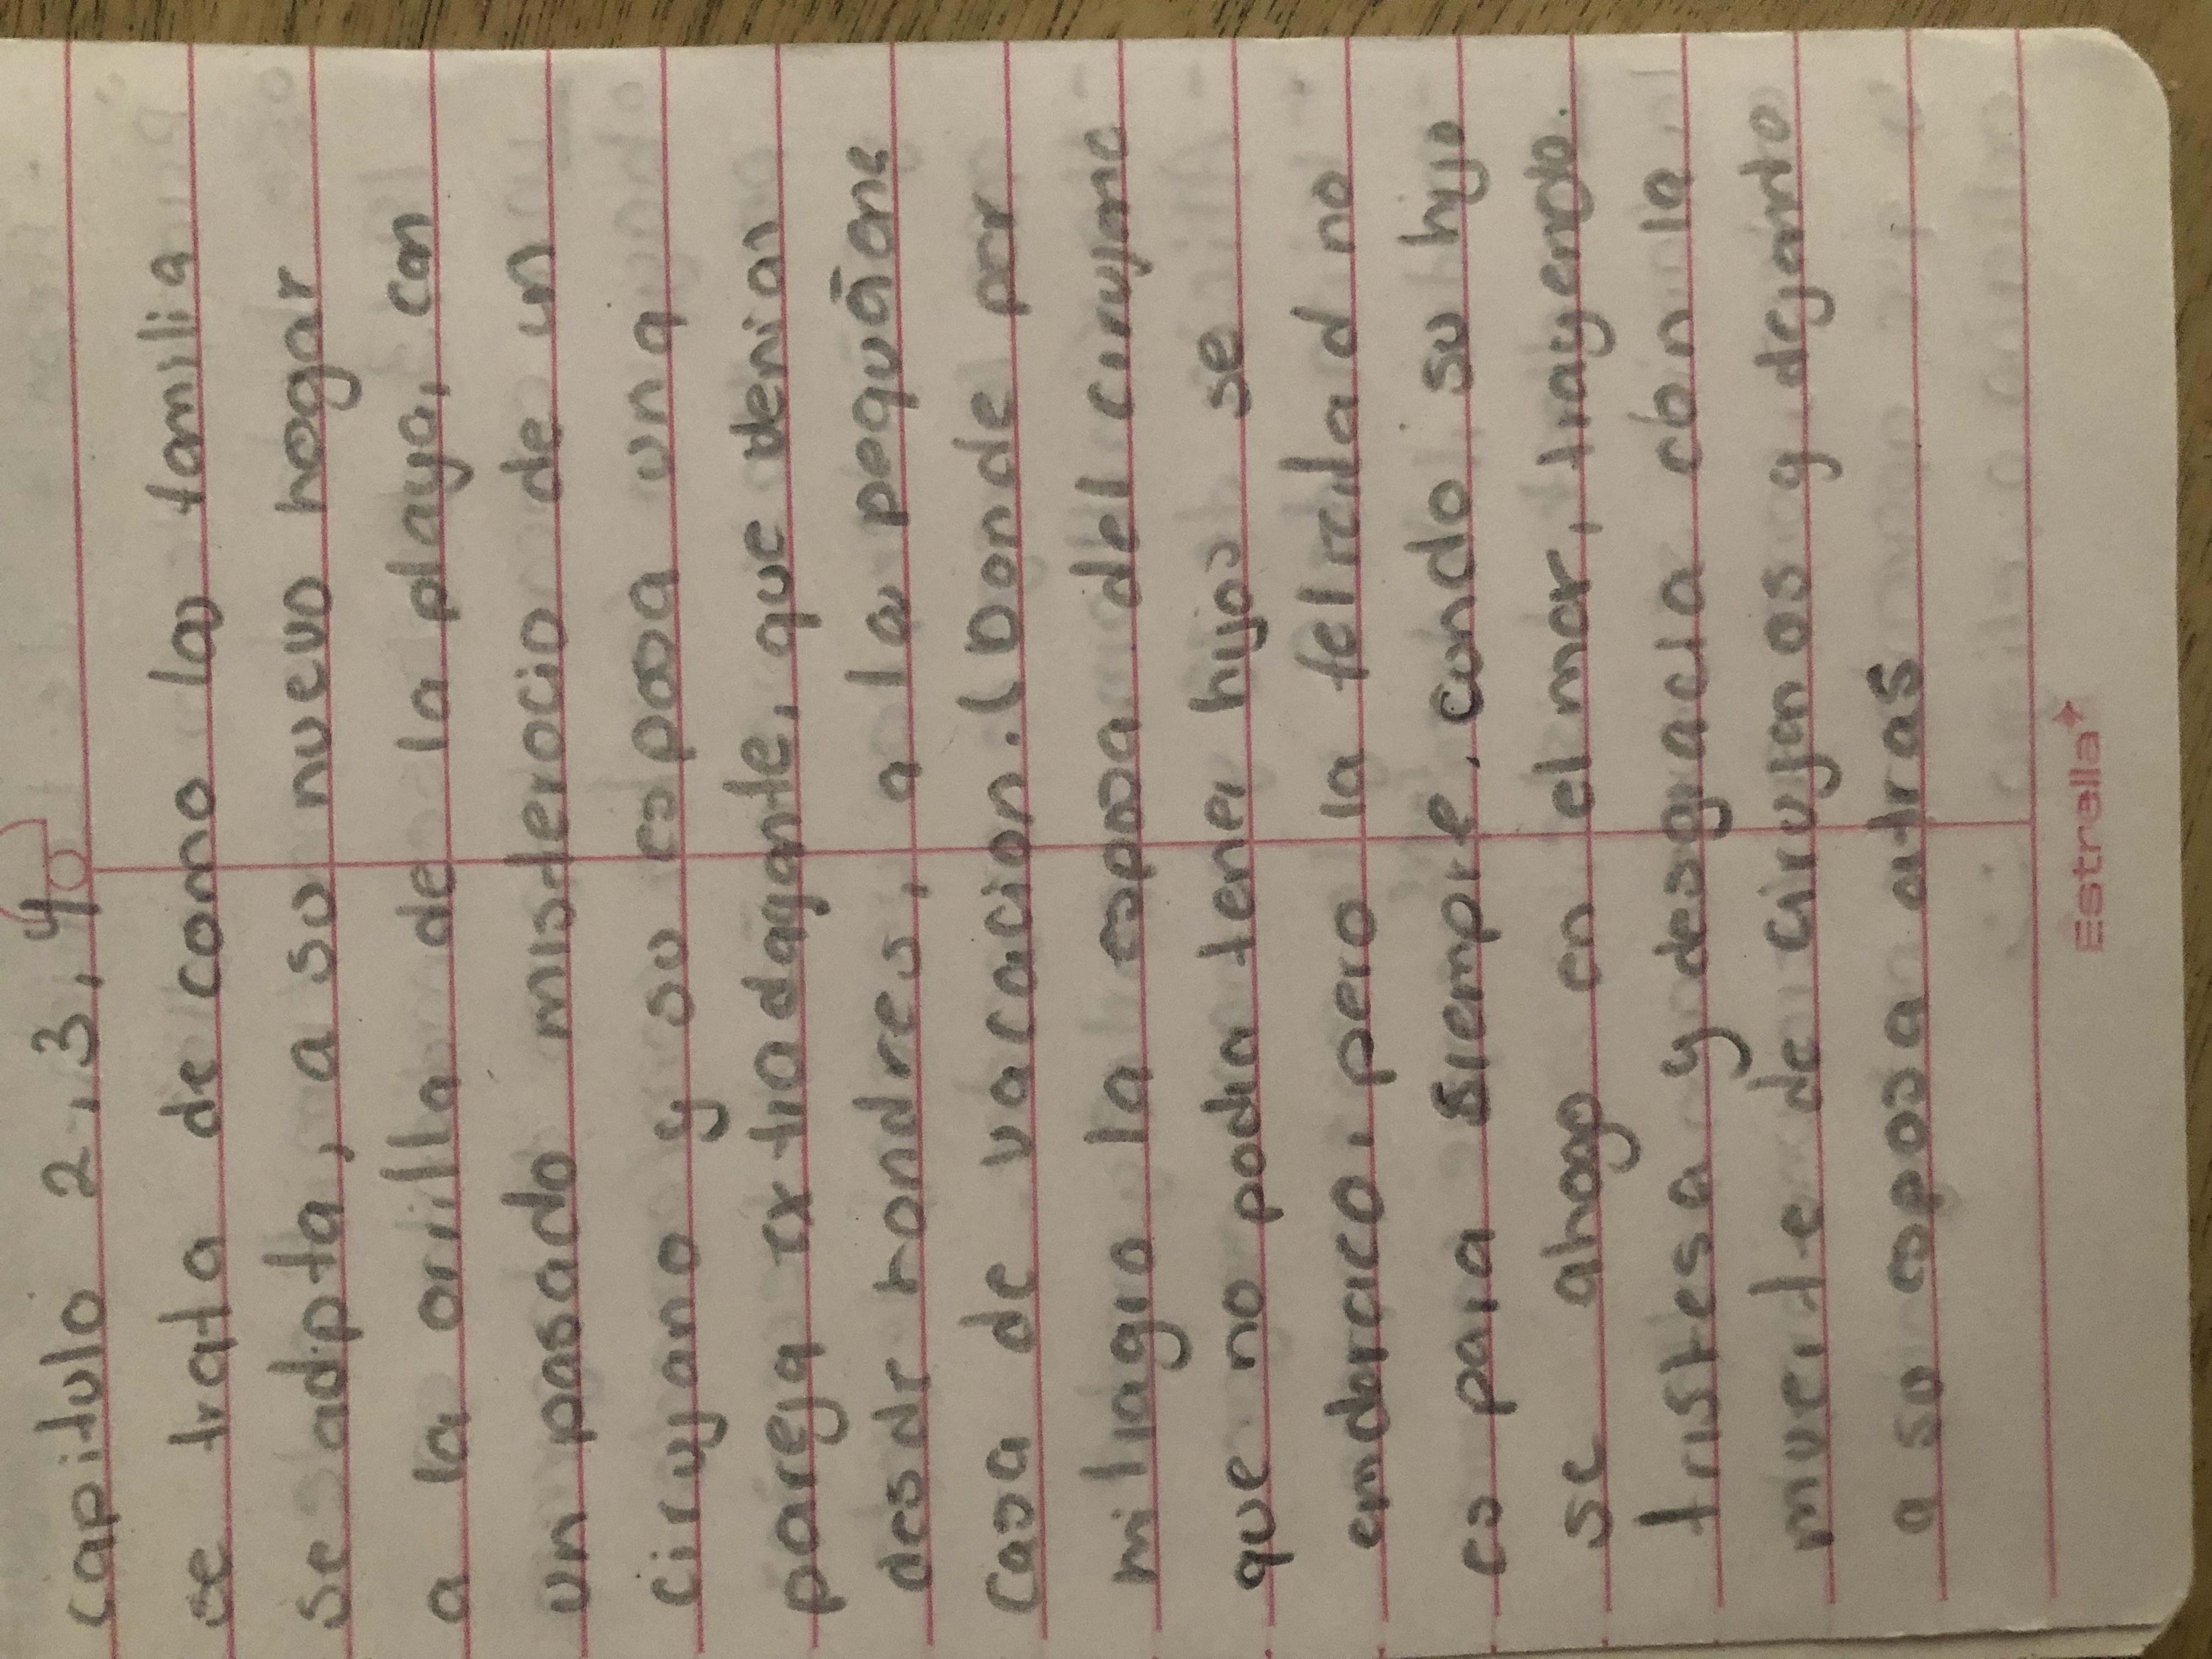 Capitulo 2,3,4
se trata de como la familia
se adpta, a su nuevo hogar
a la orilla de la playa, con
un pasado misterocio de un
cirujano y su esposa una
pareja extradagante, que venian
desde Londres, a la pequãena
casa de vacacion. (Donde por
milagro la esposa del cirujano
que no podia tener hijos se
emdarcaco, pero la felicidad no
es para siempre, cundo su hijo
se ahogo en el mar, trayendo.
tristesa y desgracia con la
muerte de cirujanos y dejanto
a su esposa atras
Estrella